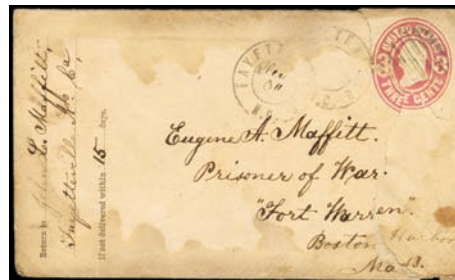 Return to John L. Maffitt,
Fayetteville, No. Ca.
If not delivered within 15 days.
FAYETT
N.
UNITED
THREE CENTS
Eugene A. Maffitt.
Prisoner of War.
"Fort Warren".
Boston Harbor
Mass.